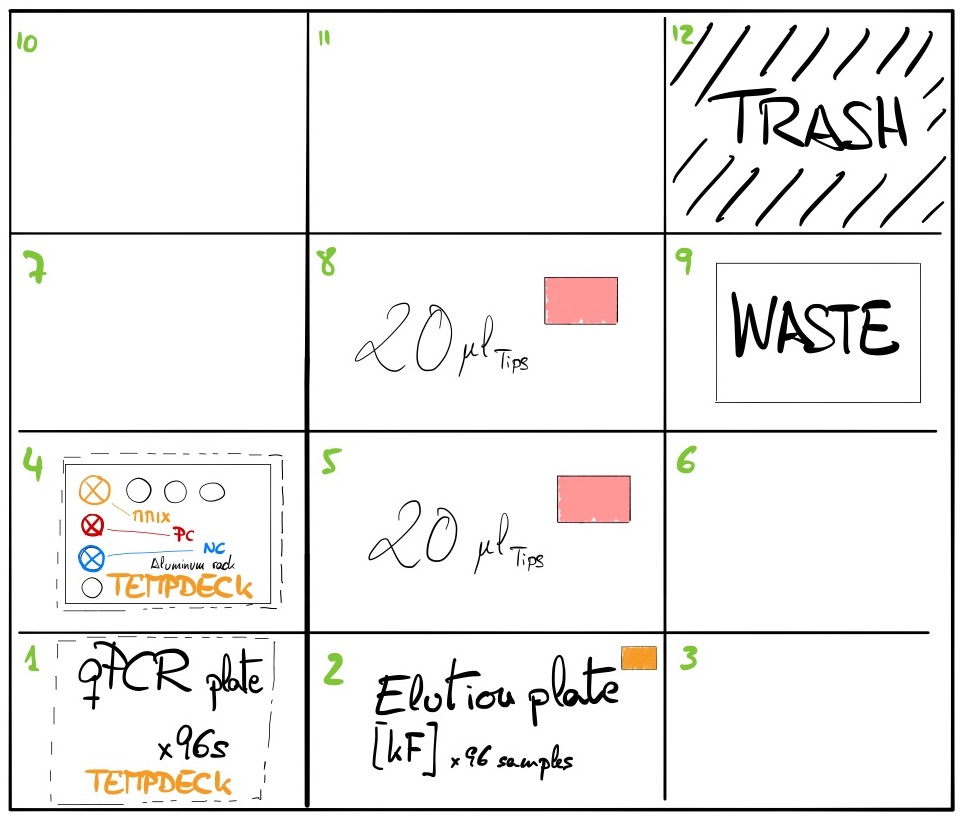 10
11
12
TRASH
7
8
20 µl Tips
9
WASTE
4
MIX
PC
NC
Aluminum rack
TEMPDECK
5
20 µl Tips
6
1
qPCR plate
x96s
TEMPDECK
2
Elution plate
[kF] x 96 samples
3